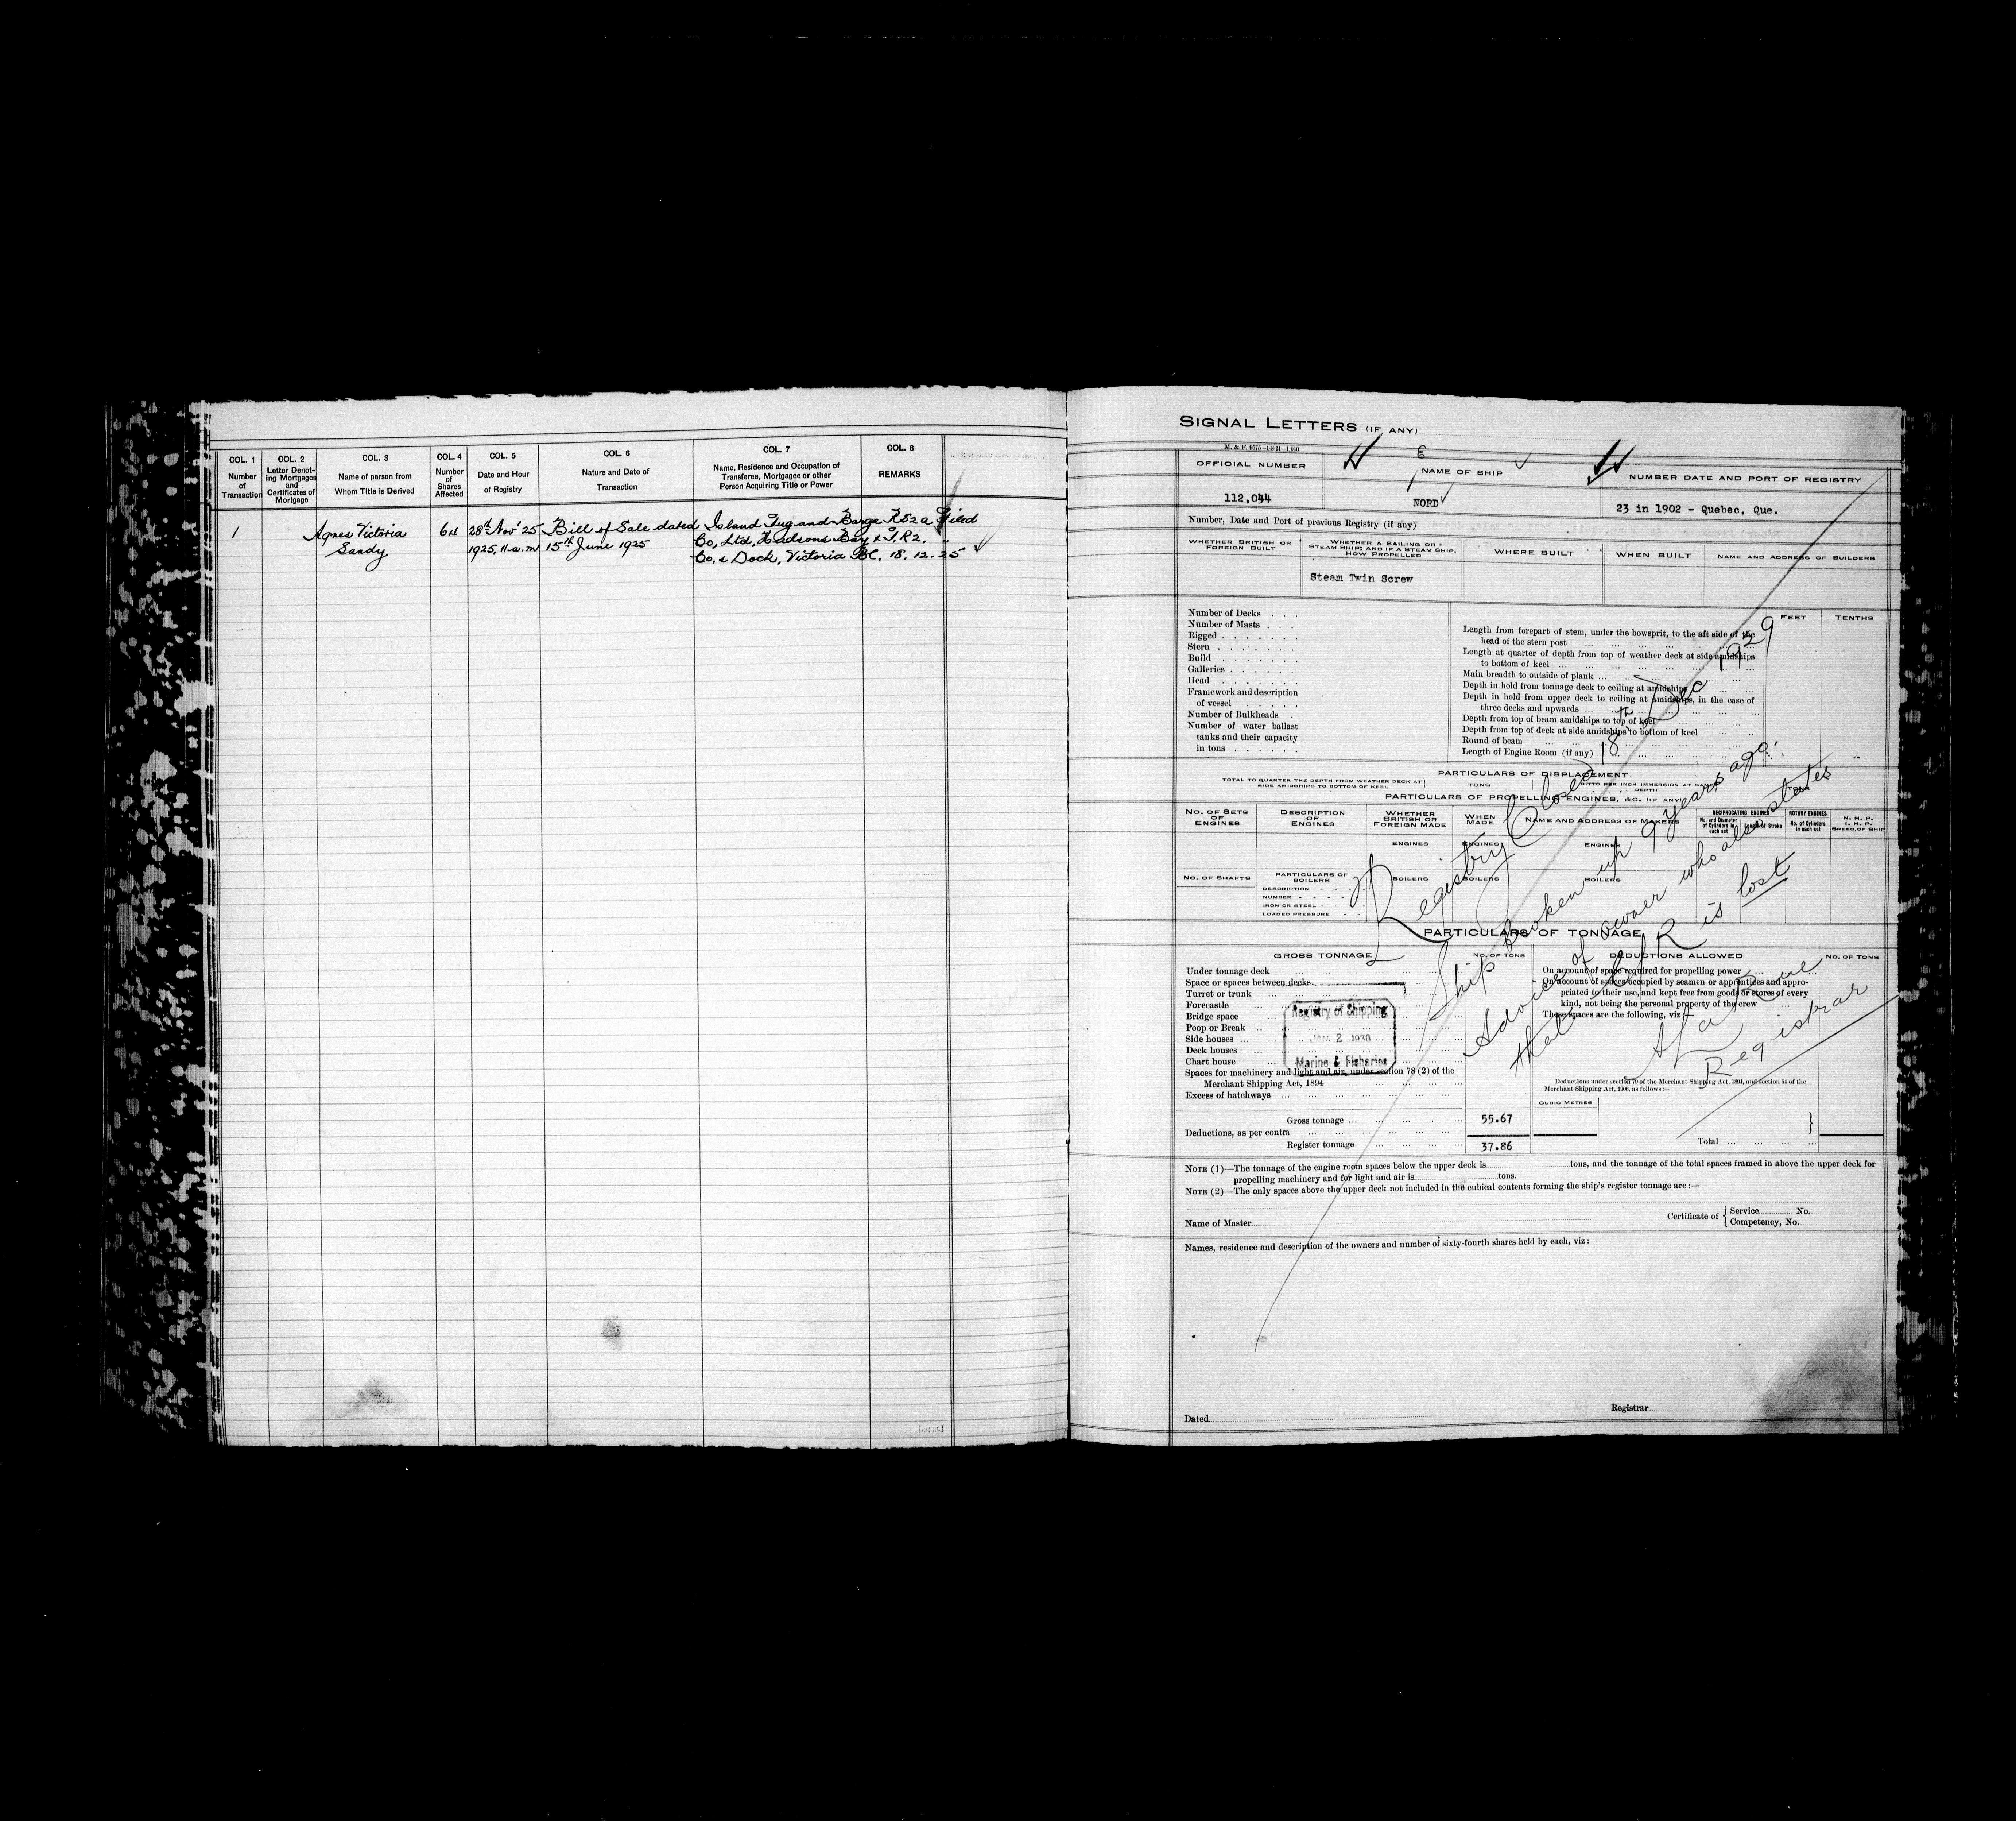 COL. 1
Number
of
Transaction
COL. 2
Letter Denot-
ing Mortgages
and
Certificates of
Mortgage
COL. 3
Name of person from
Whom Title is Derived
COL. 4
Number
of
Shares
Affected
COL. 5
Date and Hour
of Registry
COL. 6
Nature and Date of
Transaction
COL. 7
Name, Residence and Occupation of
Transferee, Mortgagee or other
Person Acquiring Title or Power
COL. 8
REMARKS
1
Agnes Victoria
Sandy
64
28th Nov' 25
1925, 11 a.m
Bill of Sale dated
15th June 1925
Island Tug and Barge R52a Filed
Co, Ltd, Hudsons Bay & T.R2. "
Co, s Dock, Victoria BC. 18. 12. 25
SIGNAL LETTERS (IF ANY)
M. & F. 9075-1-8-11-1,000
OFFICIAL NUMBER
112,044
NAME OF SHIP
NORD
NUMBER DATE AND PORT OF REGISTRY
23 in 1902 - Quebec, Que.
Number, Date and Port of previous Registry (if any)
WHETHER BRITISH OR
FOREIGN BUILT
WHETHER A SAILING OR
STEAM SHIP; AND IF A STEAM SHIP,
HOW PROPELLED
WHERE BUILT
WHEN BUILT
NAME AND ADDRESS OF BUILDERS
Steam Twin Screw
Number of Decks
Number of Masts
Rigged
Stern
Build
Galleries
Head
Framework and description
of vessel
Number of Bulkheads
Number of water ballast
tanks and their capacity
in tons
FEET
TENTHS
Length from forepart of stem, under the bowsprit, to the aft side of the
head of the stern post
Length at quarter of depth from top of weather deck at side amidships
to bottom of keel
Main breadth to outside of plank
Depth in hold from tonnage deck to ceiling at amidships
Depth in hold from upper deck to ceiling at amidships, in the case of
three decks and upwards
Depth from top of beam amidships to top of keel
Depth from top of deck at side amidships to bottom of keel
Round of beam
Length of Engine Room (if any)
PARTICULARS OF DISPLACEMENT
TOTAL TO QUARTER THE DEPTH FROM WEATHER DECK AT
SIDE AMIDSHIPS TO BOTTOM OF KEEL
TONS
DITTO PER INCH IMMERSION AT SAME
DEPTH
PARTICULARS OF PROPELLING ENGINES, &C. (IF ANY)
NO. OF SETS
OF
ENGINES
DESCRIPTION
OF
ENGINES
WHETHER
BRITISH OR
FOREIGN MADE
WHEN
MADE
NAME AND ADDRESS OF MAKERS
RECIPROCATING ENGINES
No. and Diameter
of Cylinders in
each set
Length of Stroke
ROTARY ENGINES
No. of Cylinders
in each set
N. H. P.
I. H. P.
SPEED OF SHIP
ENGINES
ENGINES
ENGINES
NO. OF SHAFTS
PARTICULARS OF
BOILERS
DESCRIPTION
NUMBER
IRON OR STEEL
LOADED PRESSURE
BOILERS
BOILERS
BOILERS
PARTICULARS OF TONNAGE
GROSS TONNAGE
NO. OF TONS
DEDUCTIONS ALLOWED
NO. OF TONS
Under tonnage deck
Space or spaces between decks
Turret or trunk
Forecastle
Bridge space
Poop or Break
Side houses
Deck houses
Chart house
Spaces for machinery and light and air, under section 78 (2) of the
Merchant Shipping Act, 1894
Excess of hatchways
On account of space required for propelling power
On account of spaces occupied by seamen or apprentices and appro-
priated to their use, and kept free from goods or stores of every
kind, not being the personal property of the crew
These spaces are the following, viz :—
Deductions under section 79 of the Merchant Shipping Act, 1894, and section 54 of the
Merchant Shipping Act, 1906, as follows:—
CUBIC METRES
Gross tonnage
55.67
Deductions, as per contra
Register tonnage
37.86
Total
Registry of Shipping
2 1930
Marine & Fisheries
Registry Closed 18th Dec 1929
Ship broken up 9 years ago.
Advice of owner who also states
that C of R is lost
Registrar
NOTE (1)—The tonnage of the engine room spaces below the upper deck is tons, and the tonnage of the total spaces framed in above the upper deck for
propelling machinery and for light and air is tons.
NOTE (2)—The only spaces above the upper deck not included in the cubical contents forming the ship's register tonnage are :—
Name of Master
Certificate of { Service No.
Competency, No.
Names, residence and description of the owners and number of sixty-fourth shares held by each, viz :
Dated
Registrar